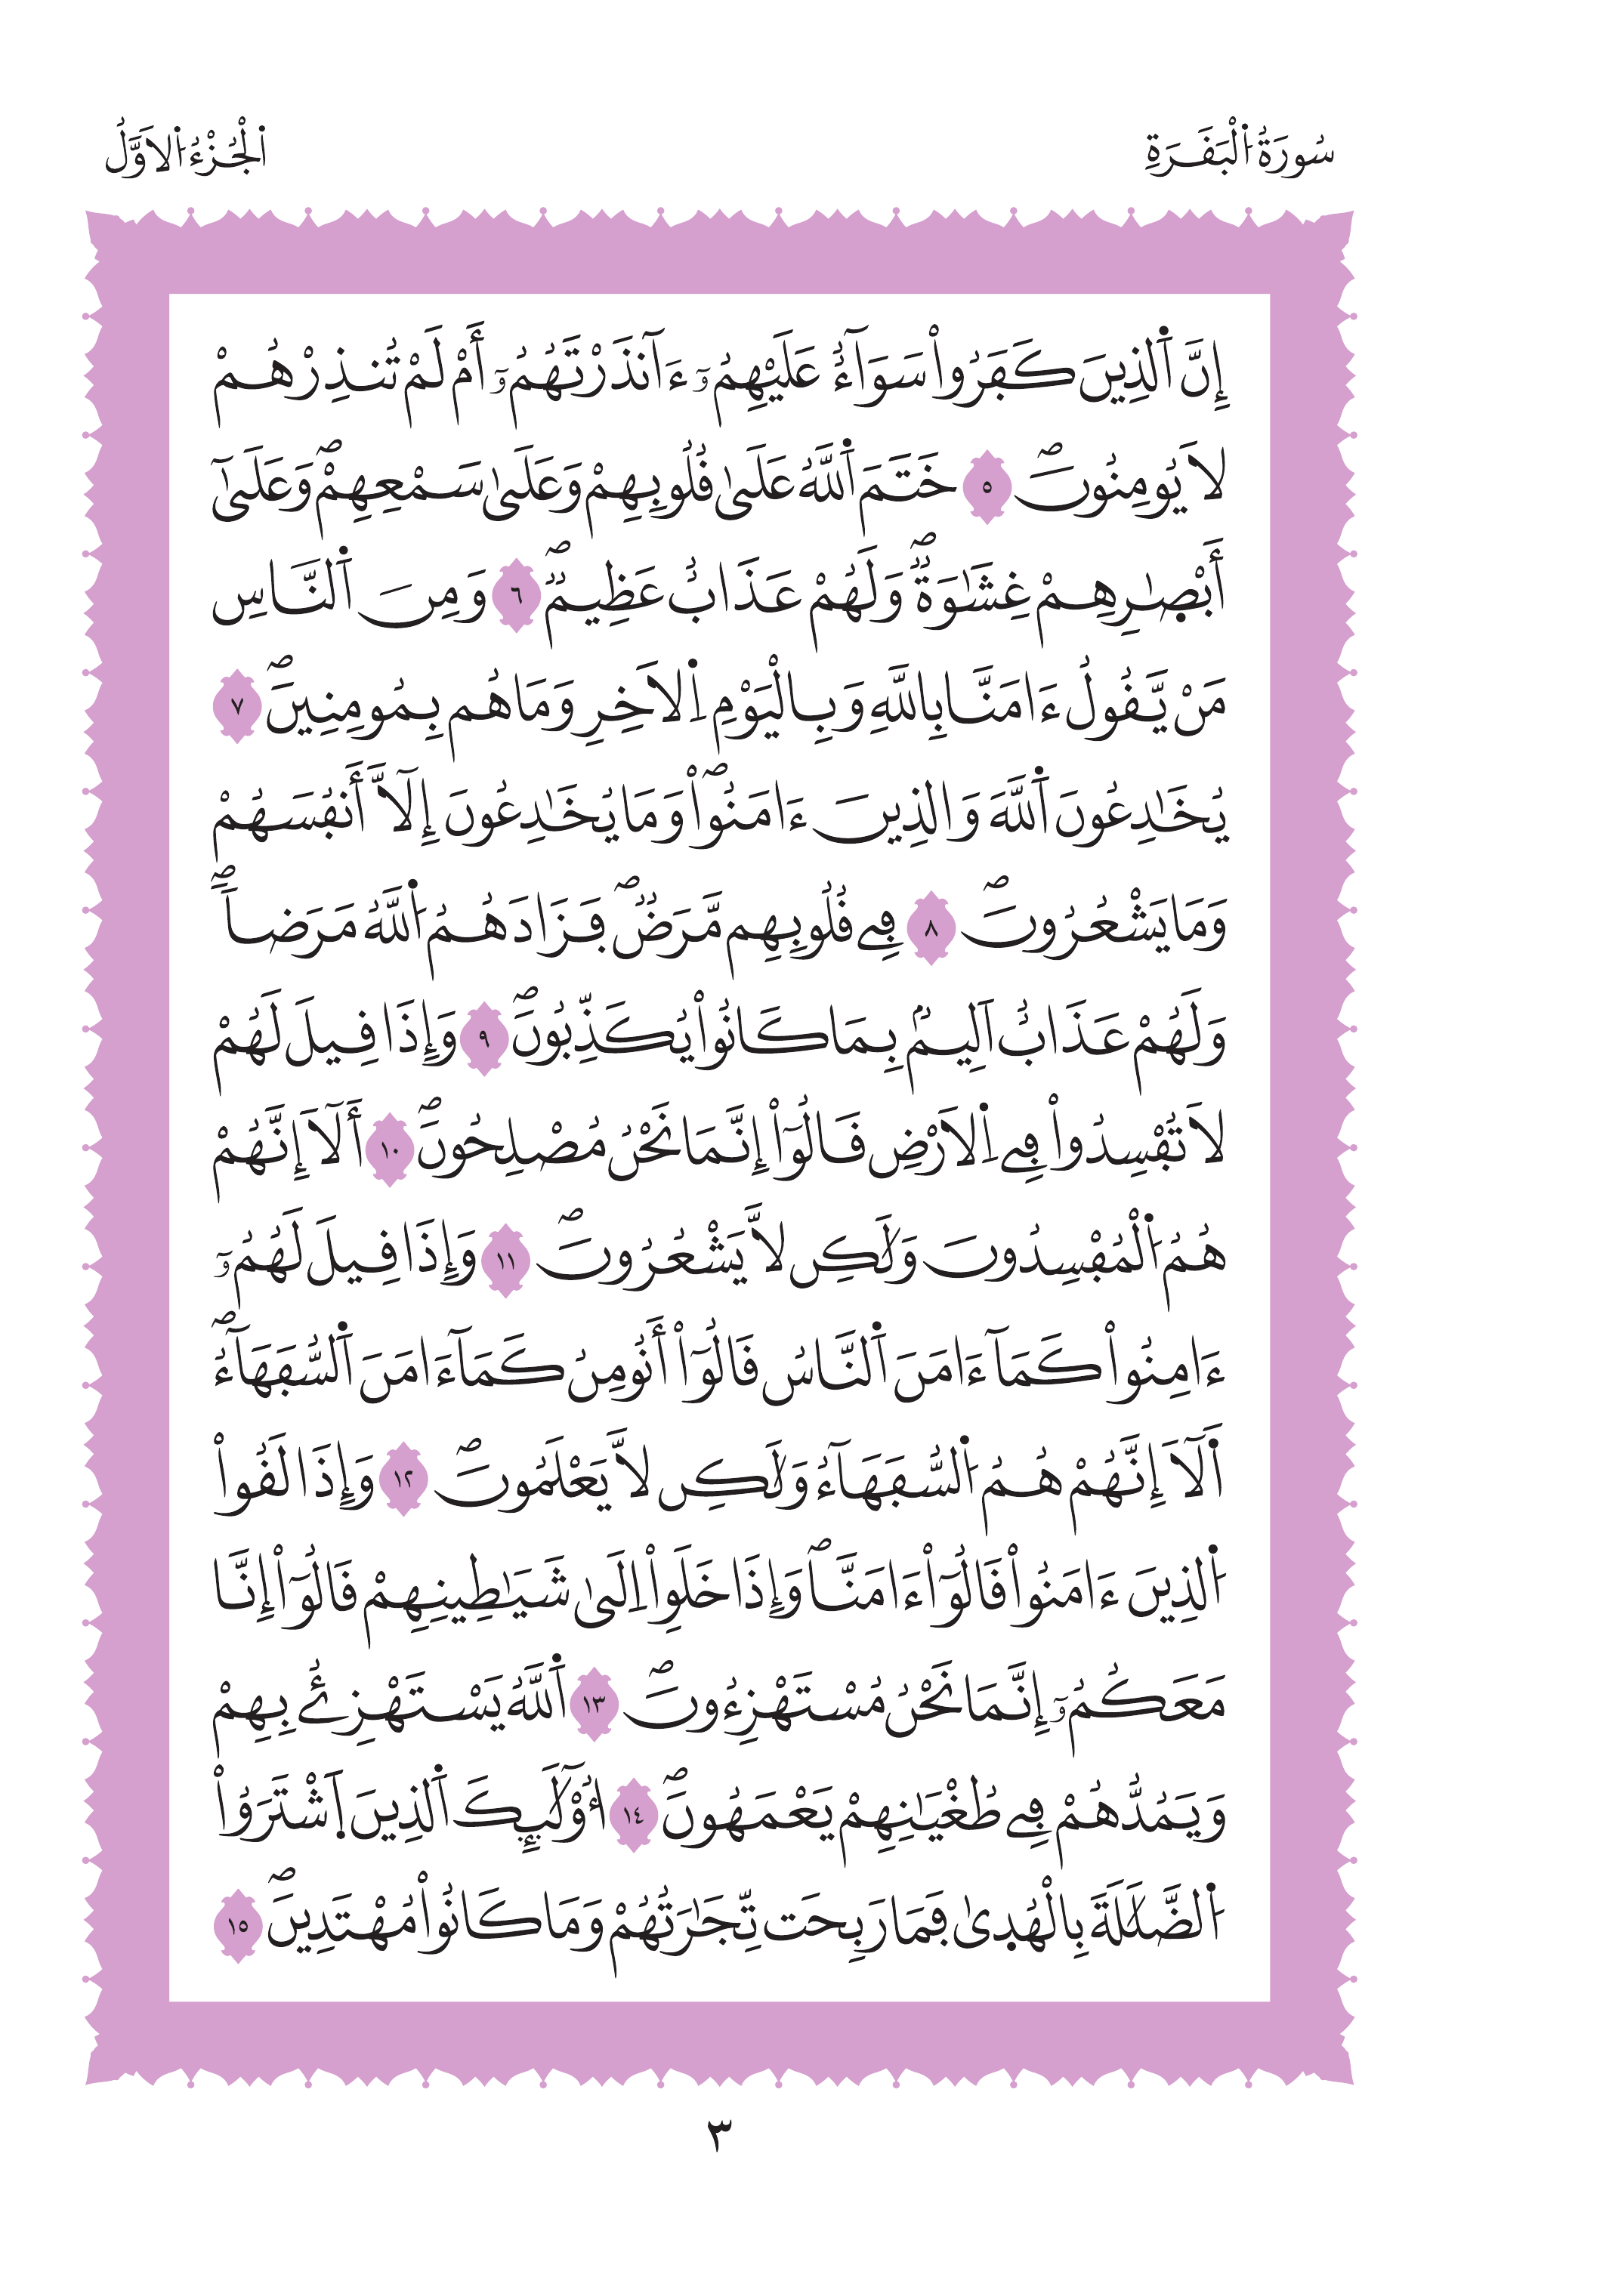 سُورَةُ اُ۬لْبَفَرَةِ
اَ۬لْجُزْءُ اُ۬لَاوَّلُ
إِنَّ اَ۬لذِينَ كَفَرُواْ سَوَآءٌ عَلَيْهِمُۥٓ ءَآنذَرْتَهُمُۥٓ أَمْ لَمْ تُنذِرْهُمْ
لَا يُومِنُونَۖ ٥ خَتَمَ اَ۬للَّهُ عَلَىٰ فُلُوبِهِمْ وَعَلَىٰ سَمْعِهِمْۖ وَعَلَىٰٓ
أَبْصٰ۪رِهِمْ غِشَٰوَةٞۖ وَلَهُمْ عَذَابٌ عَظِيمٞۖ ٦ وَمِنَ اَ۬لنَّاسِ
مَنْ يَّفُولُ ءَامَنَّا بِاللَّهِ وَبِالْيَوْمِ اِ۬لَاخِرِ وَمَا هُم بِمُومِنِينَۖ ٧
يُخَٰدِعُونَ اَ۬للَّهَ وَالذِينَ ءَامَنُواْۖ وَمَا يُخَٰدِعُونَ إِلَّآ أَنفُسَهُمْ
وَمَا يَشْعُرُونَۖ ٨ فِے فُلُوبِهِم مَّرَضٞۖ فَزَادَهُمُ اُ۬للَّهُ مَرَضاٗۖ
وَلَهُمْ عَذَابٌ اَلِيمُۢ بِمَا كَانُواْ يُكَذِّبُونَۖ ٩ وَإِذَا فِيلَ لَهُمْ
لَا تُفْسِدُواْ فِے اِ۬لَارْضِ فَالُوٓاْ إِنَّمَا نَحْنُ مُصْلِحُونَۖ ١٠ أَلَآ إِنَّهُمْ
هُمُ اُ۬لْمُفْسِدُونَ وَلَٰكِن لَّا يَشْعُرُونَۖ ١١ وَإِذَا فِيلَ لَهُمُۥٓ
ءَامِنُواْ كَمَآ ءَامَنَ اَ۬لنَّاسُ فَالُوٓاْ أَنُومِنُ كَمَآ ءَامَنَ اَ۬لسُّفَهَآءُۖ
أَلَآ إِنَّهُمْ هُمُ اُ۬لسُّفَهَآءُ وَلَٰكِن لَّا يَعْلَمُونَۖ ١٢ وَإِذَا لَفُواْ
اُ۬لذِينَ ءَامَنُواْ فَالُوٓاْ ءَامَنَّاۖ وَإِذَا خَلَوِاْ اِلَىٰ شَيَٰطِينِهِمْ فَالُوٓاْ إِنَّا
مَعَكُمُۥٓ إِنَّمَا نَحْنُ مُسْتَهْزِءُونَۖ ١٣ اَ۬للَّهُ يَسْتَهْزِۓُ بِهِمْ
وَيَمُدُّهُمْ فِے طُغْيَٰنِهِمْ يَعْمَهُونَۖ ١٤ أُوْلَٰٓئِكَ اَ۬لذِينَ اَ۪شْتَرَوُاْ
اُ۬لضَّلَٰلَةَ بِالْهُد۪ىٰ فَمَا رَبِحَت تِّجَٰرَتُهُمْ وَمَا كَانُواْ مُهْتَدِينَۖ ١٥
٣